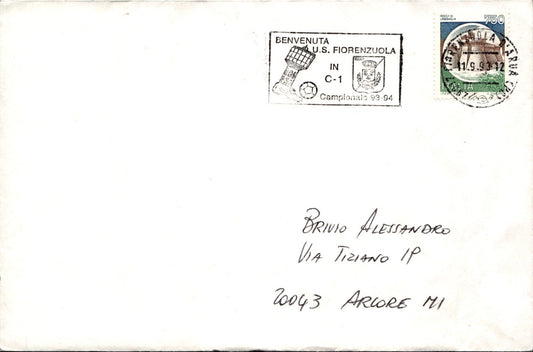 BENVENUTA
U.S. FIORENZUOLA
IN
C-1
Campionato 93-94
750
FIORENZUOLA D'ARDA (PC)
11.9.93-12
ITALIA
BRIVIO ALESSANDRO
VIA TIZIANO 1P
20043 ARCORE MI